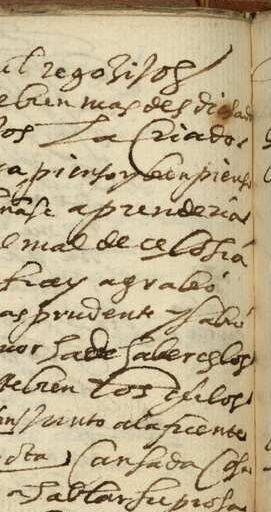 al regozixos
ebien mas desdichado
los La Criados
ca pienso y bien pienso
ñase aprenderia
l mal de celosia
fray agrabio
as prudente y sabio
mor ha de saber celos
tebien los celos
Junto a la fuente
Cansada Cosa
a hablar su prosa